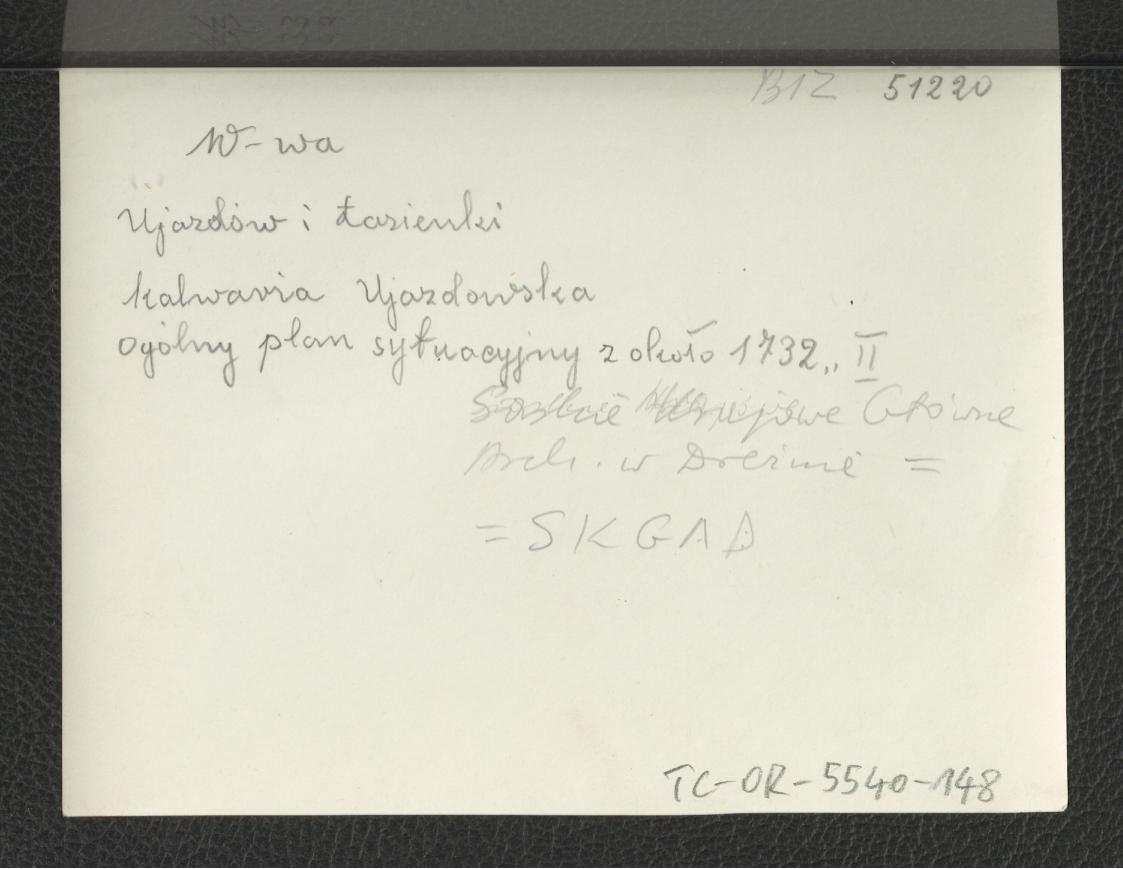 BIZ 51220
W-wa
Ujazdów i Łazienki
Kalwaria Ujazdowska
ogólny plan sytuacyjny z około 1732„ II
Saskie Główne
Arch. w Dreźnie =
= SKGAD
TC-OR-5540-148